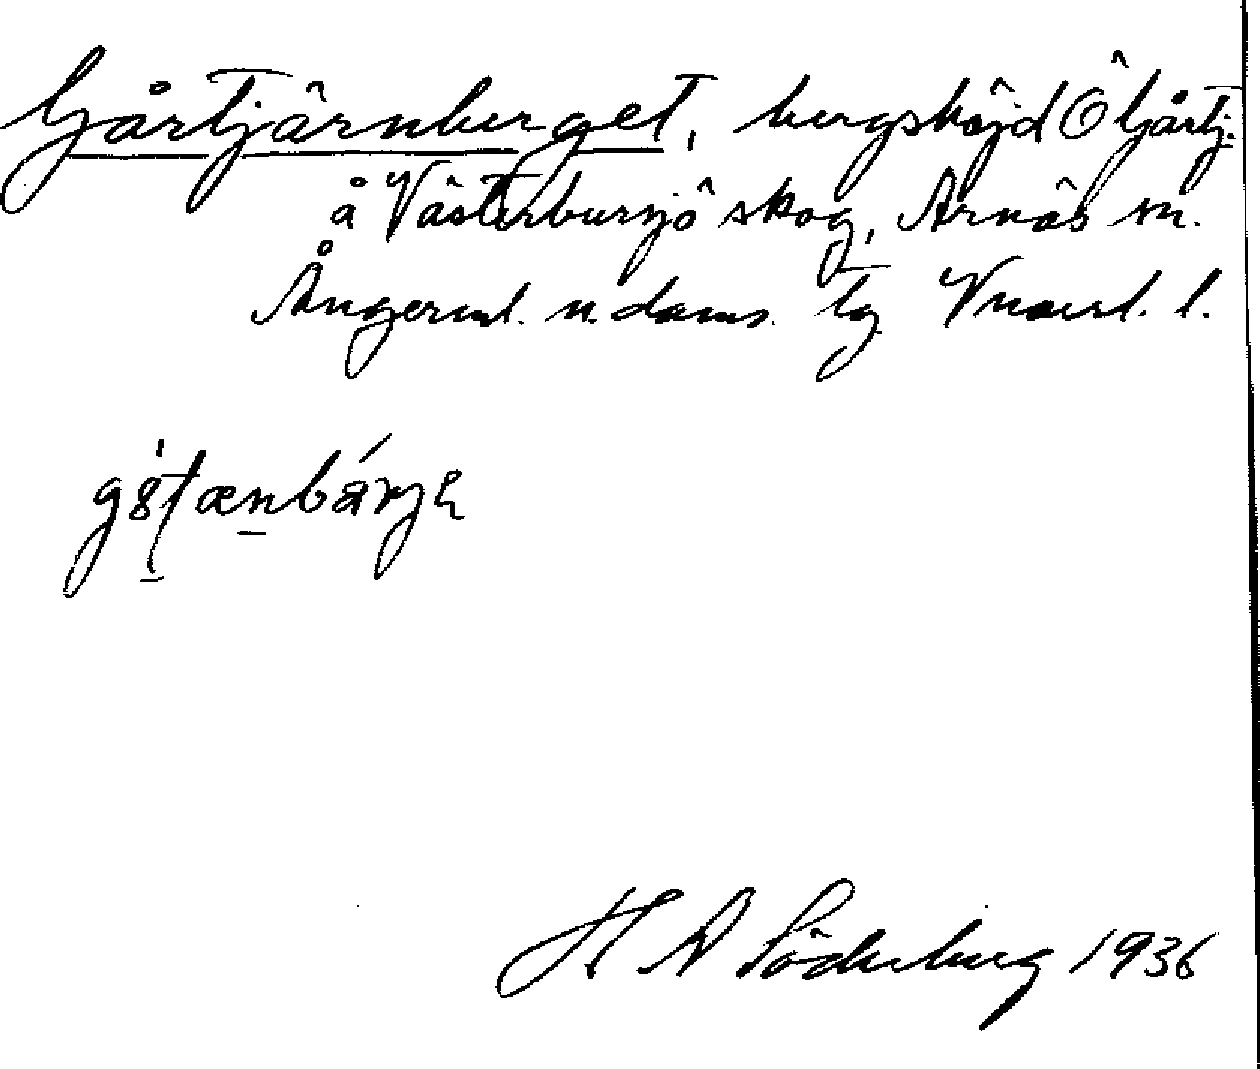 Gårtjärnberget, bergshöjd Ö Gårtj.
å Västerbursjö skog, Arnäs sn.
Ångerml. n. doms. tg Vnorrl. l.
H A Söderberg 1936